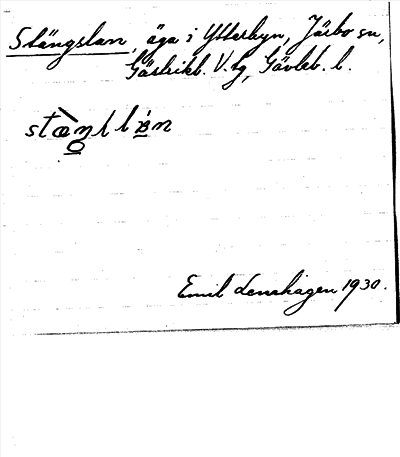 Stängslan, äga i Ytterbyn, Järbo sn,
Gästrikl. V. tg, Gävleb. l.
Emil Lenshagen 1930.